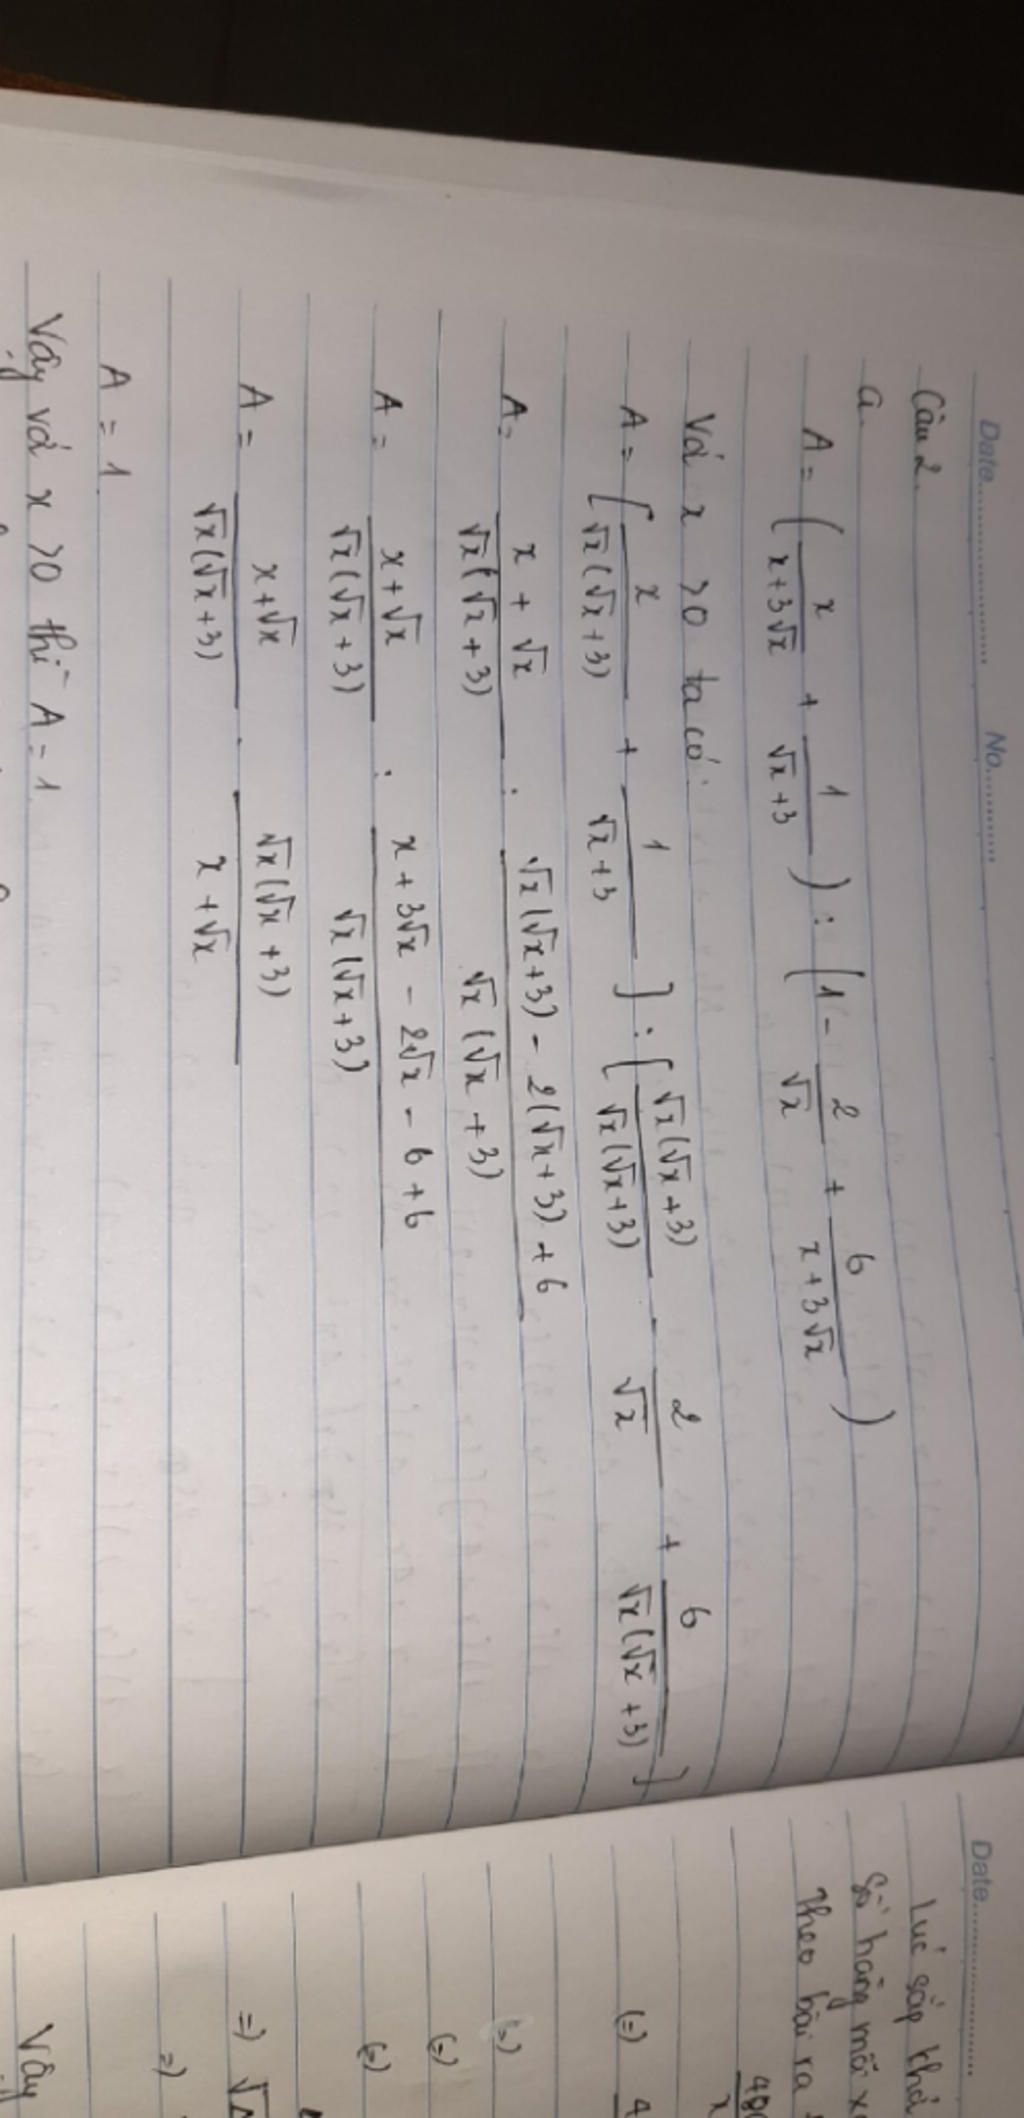 Date.................... No.............
Câu 2.
a.
A = ( x/(x+3√x) + 1/(√x+3) ) : ( 1 - 2/√x + 6/(x+3√x) )
Với x > 0 ta có:
A = [ x/(√x(√x+3)) + 1/(√x+3) ] : [ √x(√x+3)/(√x(√x+3)) - 2/√x + 6/(√x(√x+3)) ]
A = (x + √x)/(√x(√x+3)) : (√x(√x+3) - 2(√x+3) + 6)/(√x(√x+3))
A = (x+√x)/(√x(√x+3)) : (x + 3√x - 2√x - 6 + 6)/(√x(√x+3))
A = (x+√x)/(√x(√x+3)) . √x(√x+3)/(x+√x)
A = 1.
Vậy với x > 0 thì A = 1.
Date....................
Lúc sắp khở
Số hàng mỗi x
Theo bài ra
480
x
(=) 4
(=)
(=)
(=)
=) √
=)
Vậy